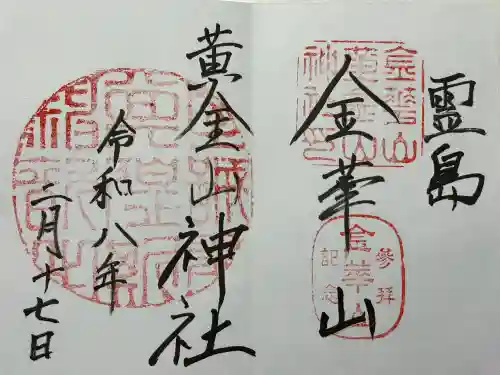 霊島
金華山
黄金山神社
令和八年
二月十七日
金華山
黄金山
神社印
金華山
参拝
記念